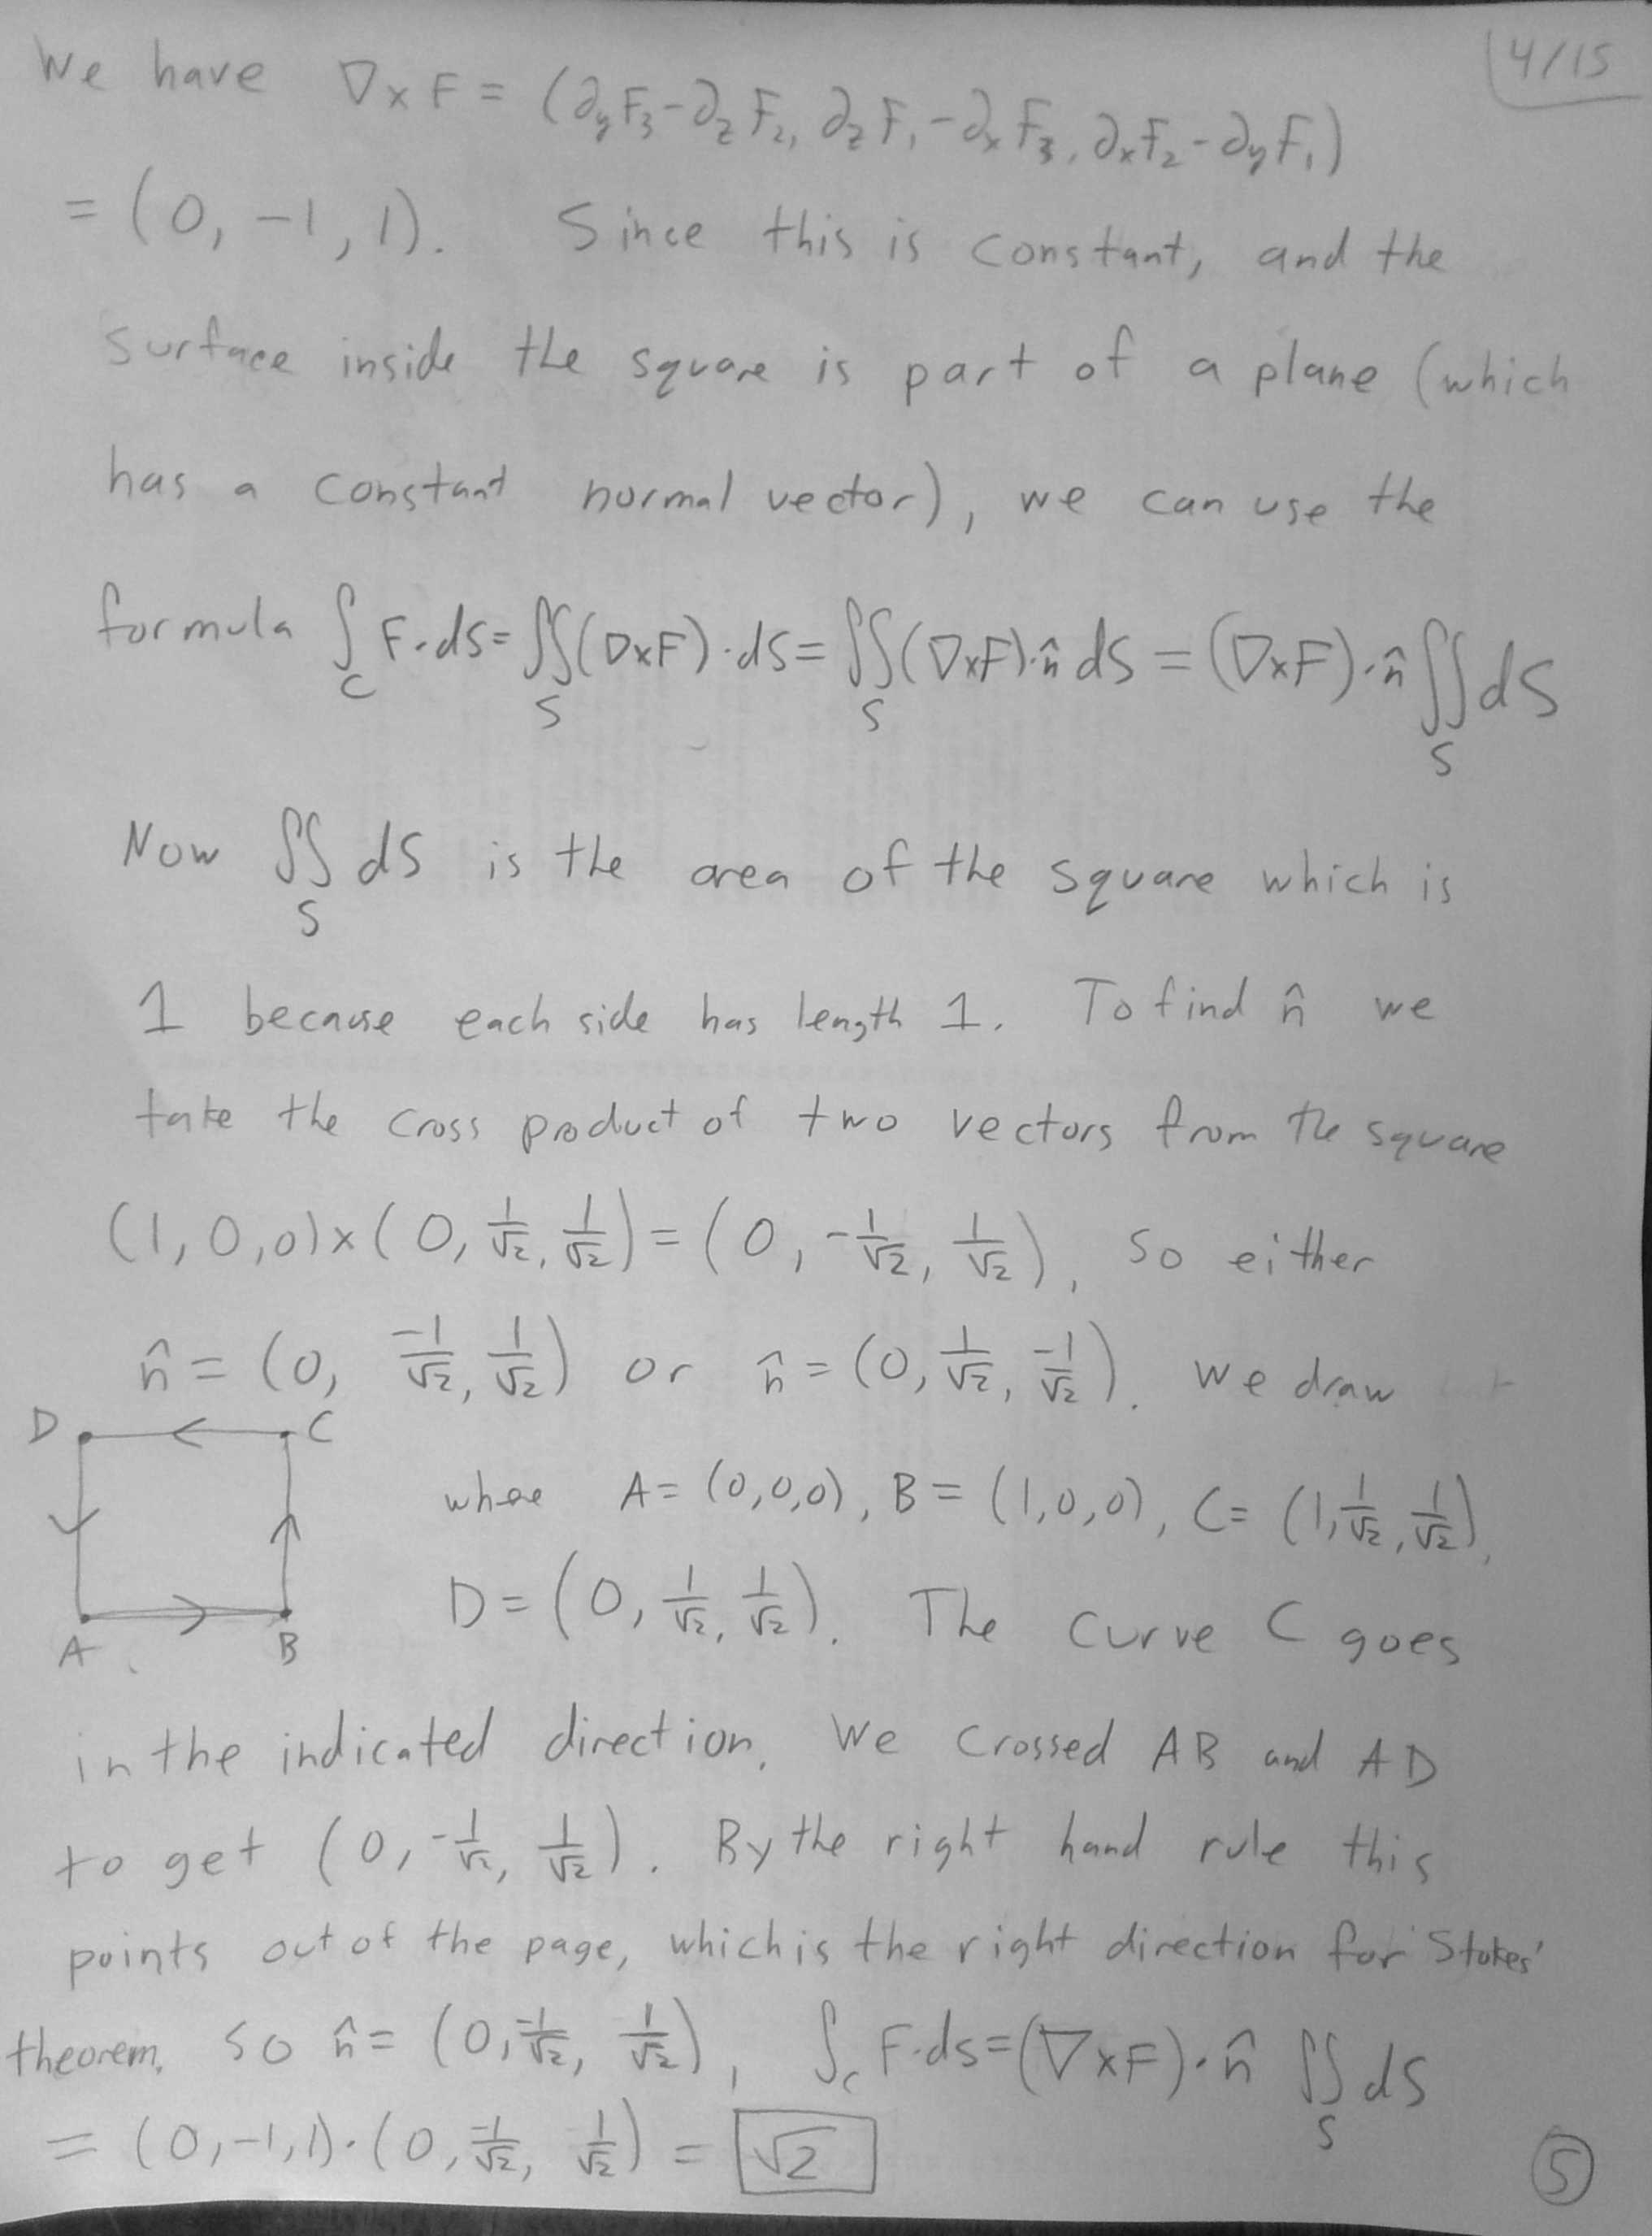 4/15
We have ∇×F = (∂yF₃-∂zF₂, ∂zF₁-∂xF₃, ∂xF₂-∂yF₁)
= (0, -1, 1). Since this is constant, and the
surface inside the square is part of a plane (which
has a constant normal vector), we can use the
formula ∫_C F·ds = ∬_S (∇×F)·dS = ∬_S (∇×F)·n̂ dS = (∇×F)·n̂ ∬_S dS
Now ∬_S dS is the area of the square which is
1 because each side has length 1. To find n̂ we
take the cross product of two vectors from the square
(1,0,0)×(0, 1/√2, 1/√2) = (0, -1/√2, 1/√2), so either
n̂ = (0, -1/√2, 1/√2) or n̂ = (0, 1/√2, -1/√2). We draw
D C
where A = (0,0,0), B = (1,0,0), C = (1, 1/√2, 1/√2),
D = (0, 1/√2, 1/√2). The curve C goes
A B
in the indicated direction. We crossed AB and AD
to get (0, -1/√2, 1/√2). By the right hand rule this
points out of the page, which is the right direction for Stokes'
theorem. So n̂ = (0, -1/√2, 1/√2), ∫_C F·ds = (∇×F)·n̂ ∬_S dS
= (0,-1,1)·(0, -1/√2, 1/√2) = √2
5